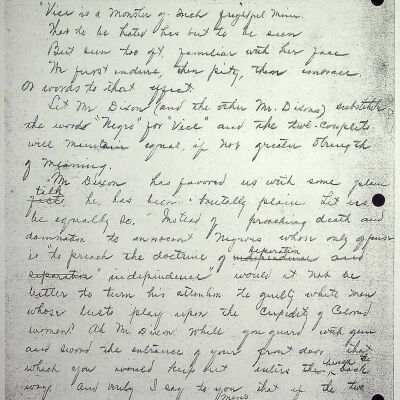 "Vice is a Monster of such frightful mien
Not to be hated has but to be seen
But seen too oft, familiar with her face
We first endure, then pity, then embrace
Or words to that effect.
Let Mr Dixon (and the other Mr. Dixons) substitute
the words "Negro" for "Vice" and the two couplets
will maintain equal, if not greater strength
of meaning.
"Mr Dixon has favored us with some plain
talk
facts, he has been brutally plain. Let us
be equally so. "Instead of preaching death and
damnation to innocent Negroes whose only offense
separation
is "to preach the doctrine of independence and
separation" independence" would it not be
better to turn his attention to guilty white men
whose lusts play upon the Cupidity of Colored
women? Ah Mr. Dixon while you guard with gun
and sword the entrance of your front door that
which you would keep out enters through the back
way, and verily I say to you that if the two
mens